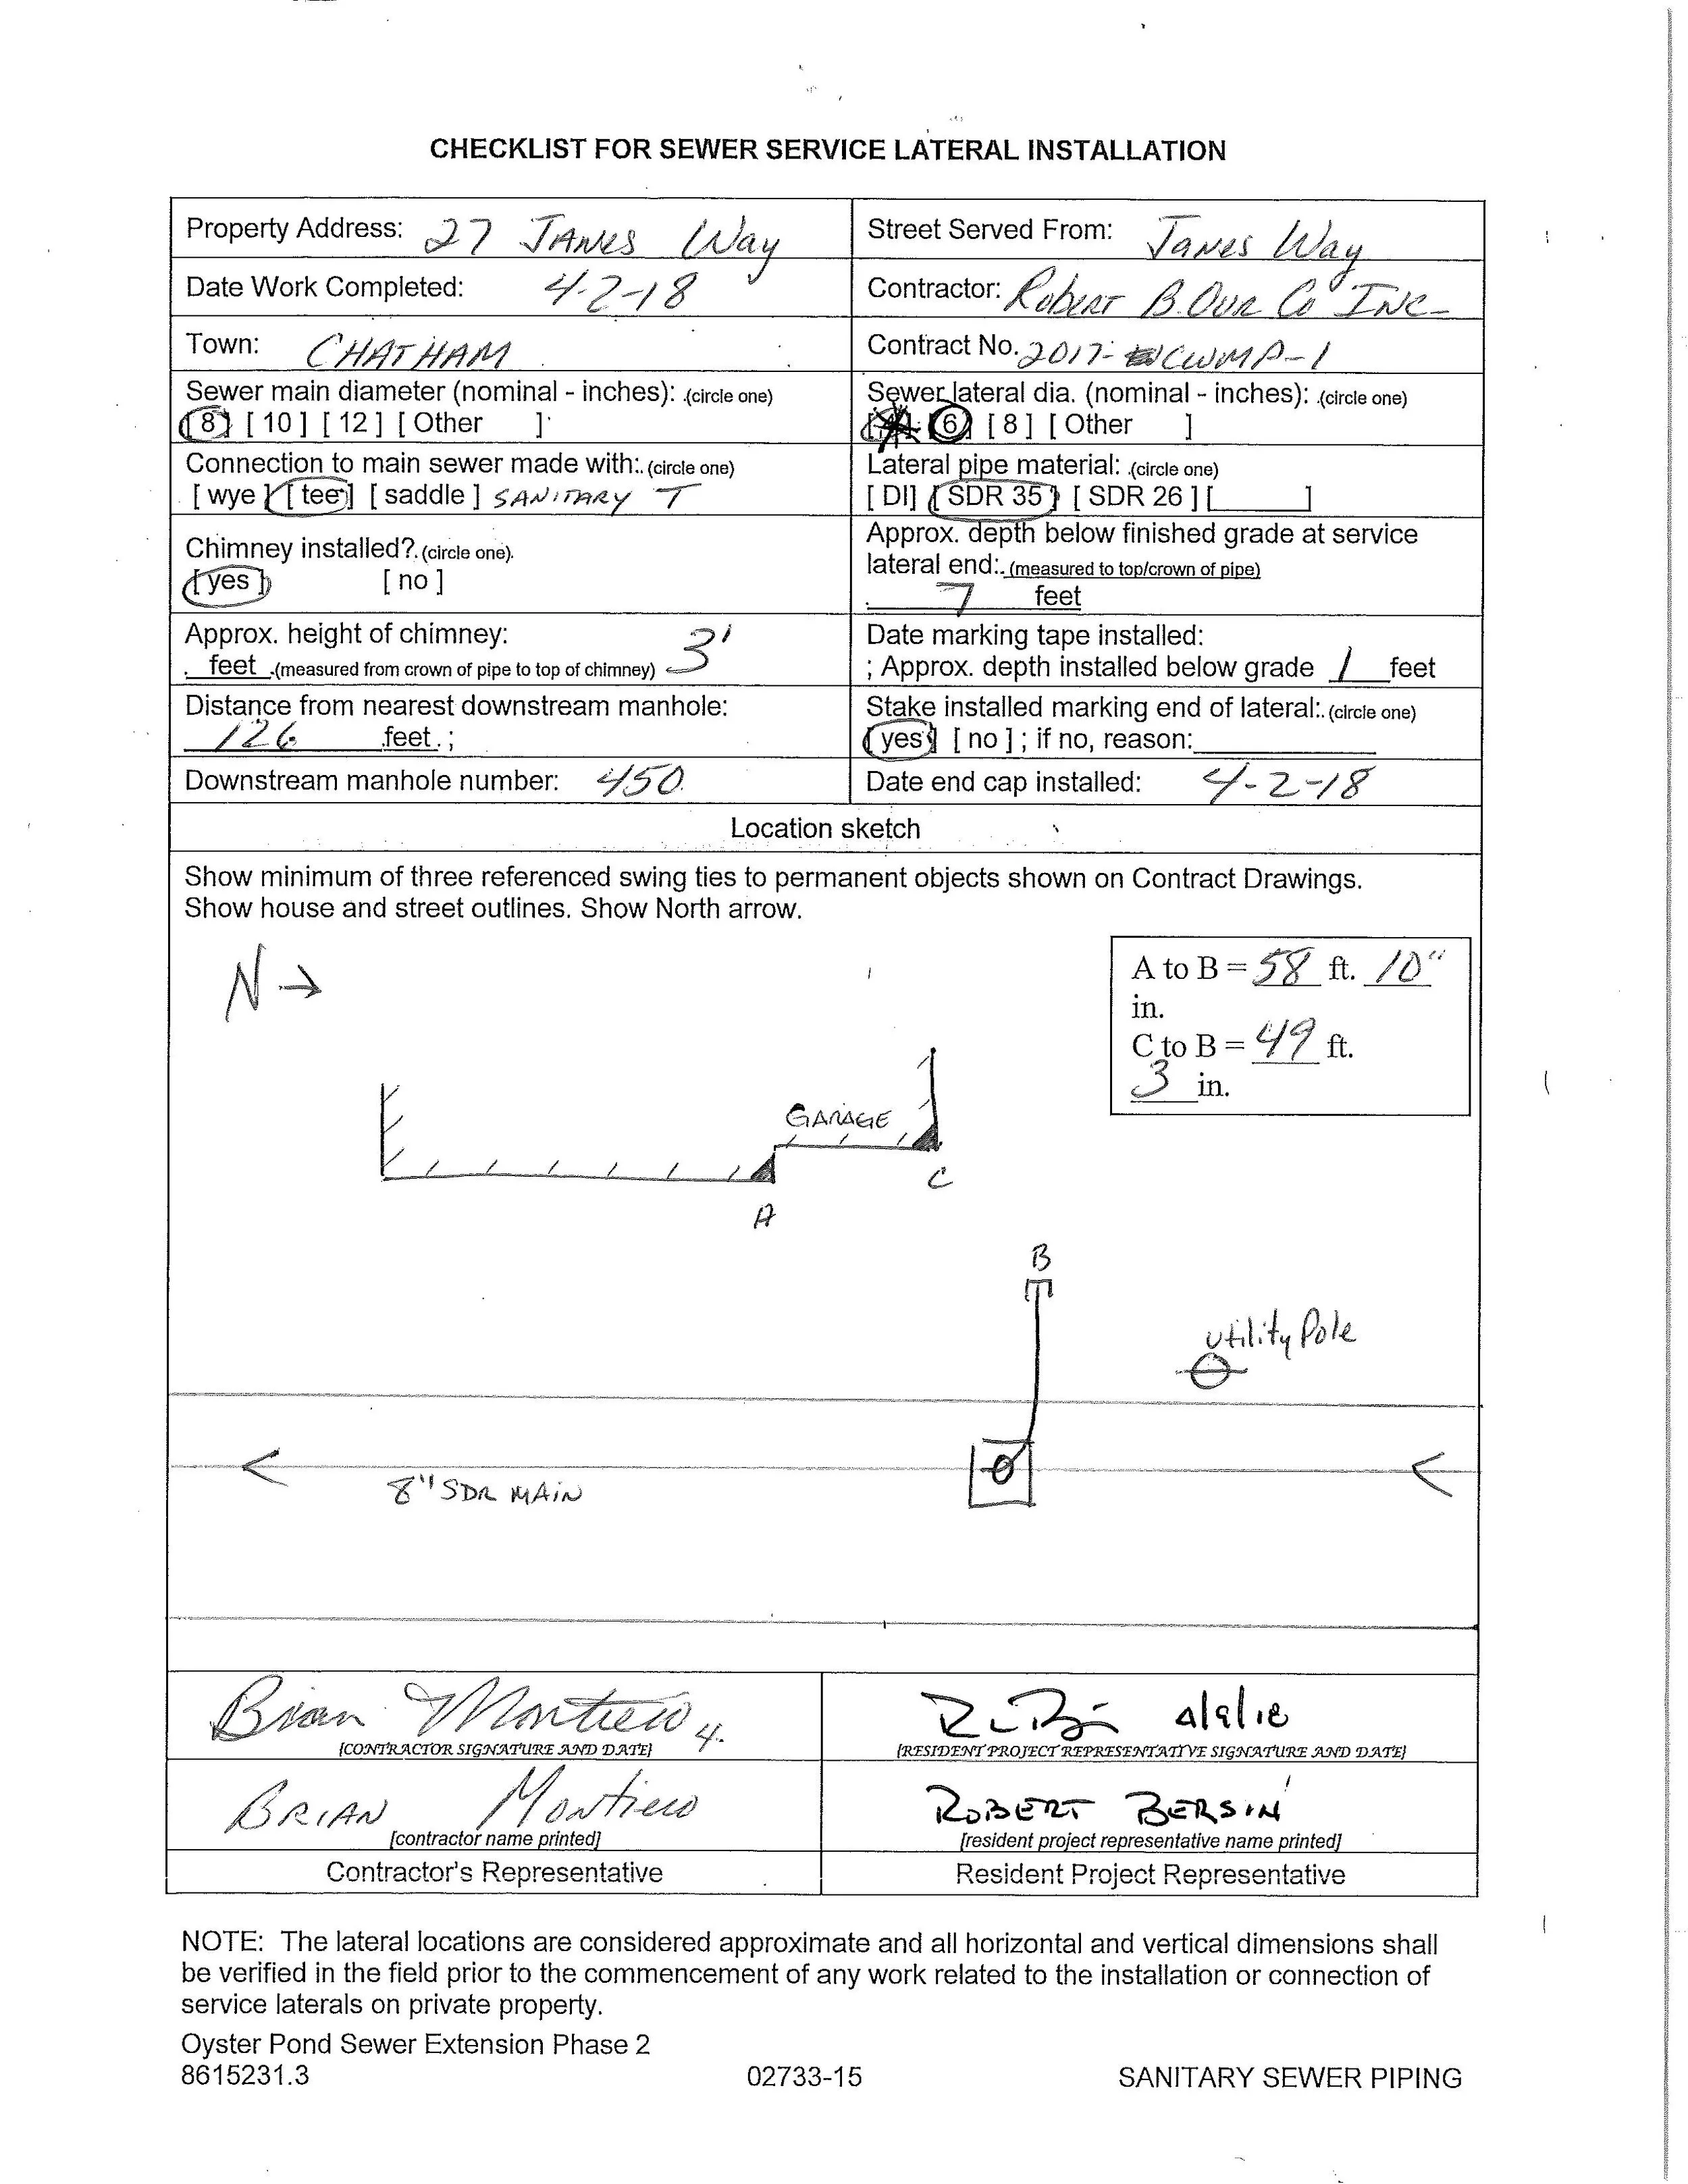 CHECKLIST FOR SEWER SERVICE LATERAL INSTALLATION
Property Address: 27 JANES Way
Street Served From: Janes Way
Date Work Completed: 4-2-18
Contractor: Robert B. Our Co INC-
Town: CHATHAM
Contract No. 2017- CWMP-1
Sewer main diameter (nominal - inches): (circle one)
[ 8 ] [ 10 ] [ 12 ] [ Other ]
Sewer lateral dia. (nominal - inches): (circle one)
[ 4 ] [ 6 ] [ 8 ] [ Other ]
Connection to main sewer made with: (circle one)
[ wye ] [ tee ] [ saddle ] SANITARY T
Lateral pipe material: (circle one)
[ DI] [ SDR 35 ] [ SDR 26 ] [ ]
Chimney installed? (circle one)
[ yes ] [ no ]
Approx. depth below finished grade at service
lateral end: (measured to top/crown of pipe)
7 feet
Approx. height of chimney:
feet (measured from crown of pipe to top of chimney) 3'
Date marking tape installed:
; Approx. depth installed below grade 1 feet
Distance from nearest downstream manhole:
126 feet ;
Stake installed marking end of lateral: (circle one)
[ yes ] [ no ] ; if no, reason:
Downstream manhole number: 450
Date end cap installed: 4-2-18
Location sketch
Show minimum of three referenced swing ties to permanent objects shown on Contract Drawings.
Show house and street outlines. Show North arrow.
N →
A to B = 58 ft. 10"
in.
C to B = 49 ft.
3 in.
GARAGE
C
A
B
utility Pole
8" SDR MAIN
Brian Montiero 4.
[CONTRACTOR SIGNATURE AND DATE]
[RESIDENT PROJECT REPRESENTATIVE SIGNATURE AND DATE]
BRIAN Montiero
[contractor name printed]
ROBERT BERSIN
[resident project representative name printed]
Contractor's Representative
Resident Project Representative
NOTE: The lateral locations are considered approximate and all horizontal and vertical dimensions shall
be verified in the field prior to the commencement of any work related to the installation or connection of
service laterals on private property.
Oyster Pond Sewer Extension Phase 2
8615231.3
02733-15
SANITARY SEWER PIPING